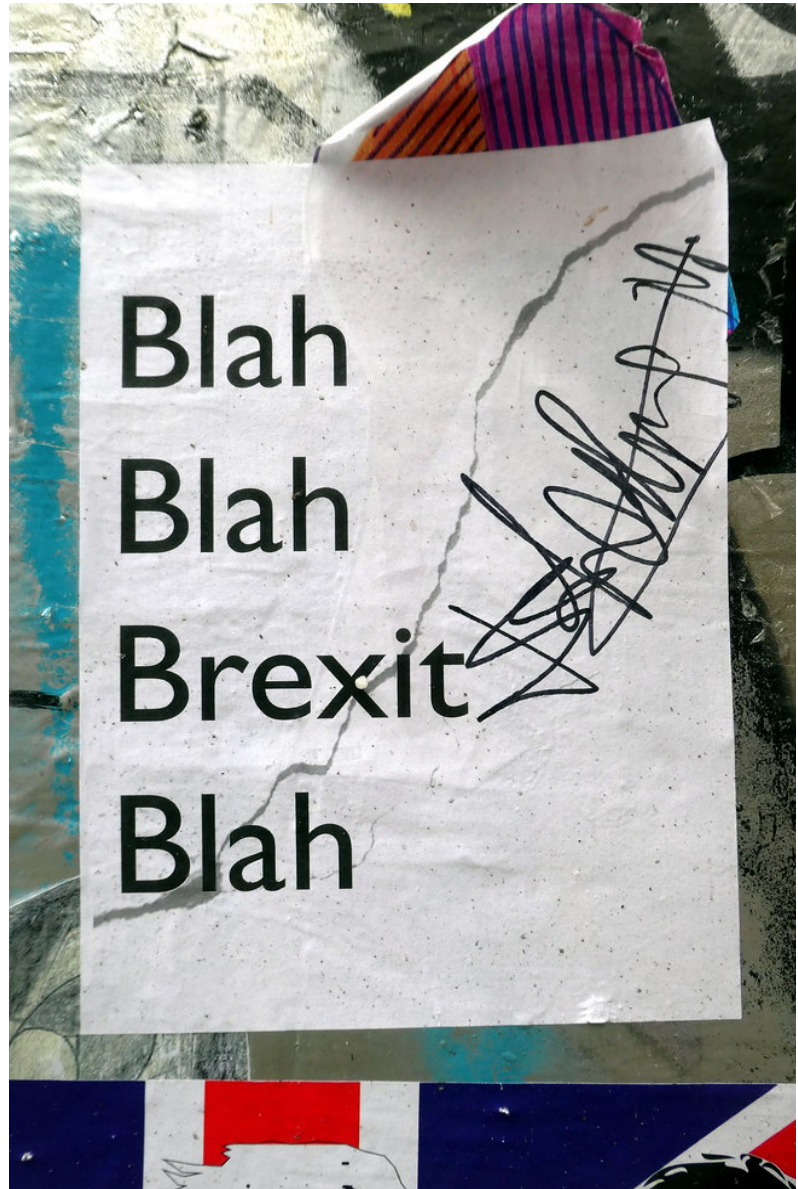 Blah
Blah
Brexit
Blah